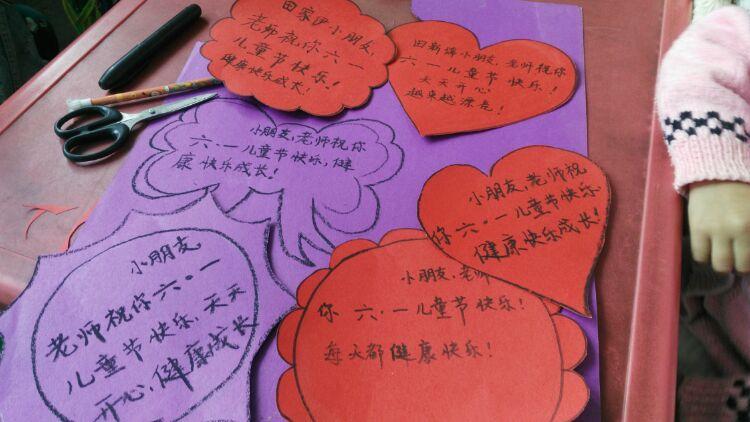 田家伊小朋友,
老师祝你六一
儿童节快乐!
健康快乐成长!
田新婷小朋友,老师祝你
六·一儿童节快乐!
天天开心
越来越漂亮!
小朋友,老师祝你
六·一儿童节快乐,健
康快乐成长!
小朋友,老师祝
你六·一儿童节快乐,
健康快乐成长!
小朋友,
老师祝你六·一
儿童节快乐,天天
开心,健康成长
小朋友,老师
你六·一儿童节快乐!
每天都健康快乐!